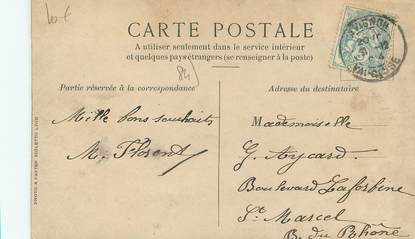 10 €
CARTE POSTALE
A utiliser seulement dans le service intérieur
et quelques pays étrangers (se renseigner à la poste)
84
Partie réservée à la correspondance
Mille bons souhaits
M. Florent
Adresse du destinataire
Mademoiselle
G. Aycard
Boulevard Laforbine
St Marcel
B. du Rhône
AVIGNON
VAUCLUSE